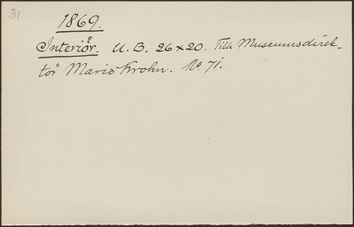 31
1869.
Interiör. U. B. 26 x 20. Till Museumsdirek-
tör Mario Krohn. No 71.